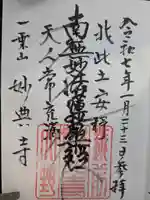 令和七年一月二十三日参拝
我此土安穏
南無妙法蓮華経
天人常充満
一乗山 妙典寺